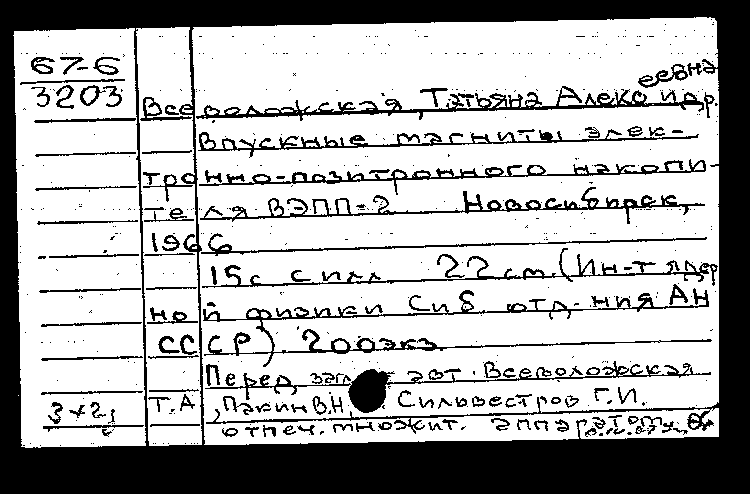 67-6
3203
Всеволожская, Татьяна Александр.
еевна
Впускные магниты элек-
тронно-позитронного накопи-
теля ВЭПП-2 Новосибирск,
1966
15с с илл 22 см. (Ин-т ядер
ной физики Сиб. отд-ния АН
СССР). 200экз.
Перед загл авт. Всеволожская
Т.А, Пакин В.Н, Сильвестров Г.И.
3 + 2
отпеч. множит. аппаратом